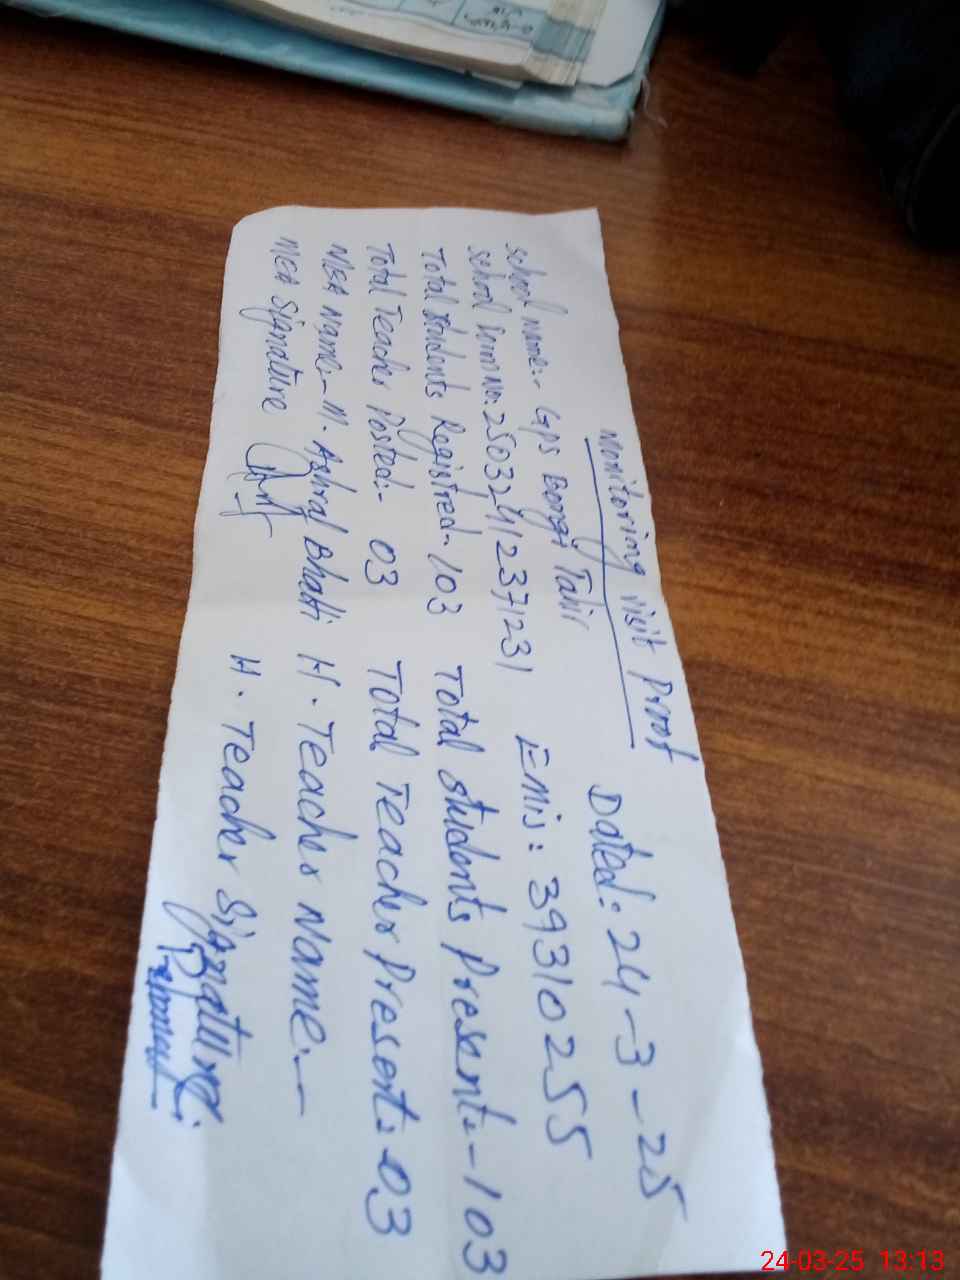 Monitoring visit Proof
Dated:- 24-3-25
School name:- GPS Bonga Tahir
Emis: 39310255
School Form No: 25032412371231
Total students Registred- 103 Total students Present:- 103
Total Teacher Posted:- 03 Total Teacher Present:- 03
MEA Name:- M. Ashraf Bhatti H. Teacher Name:-
MEA Signature H. Teacher Signature:
24-03-25 13:13